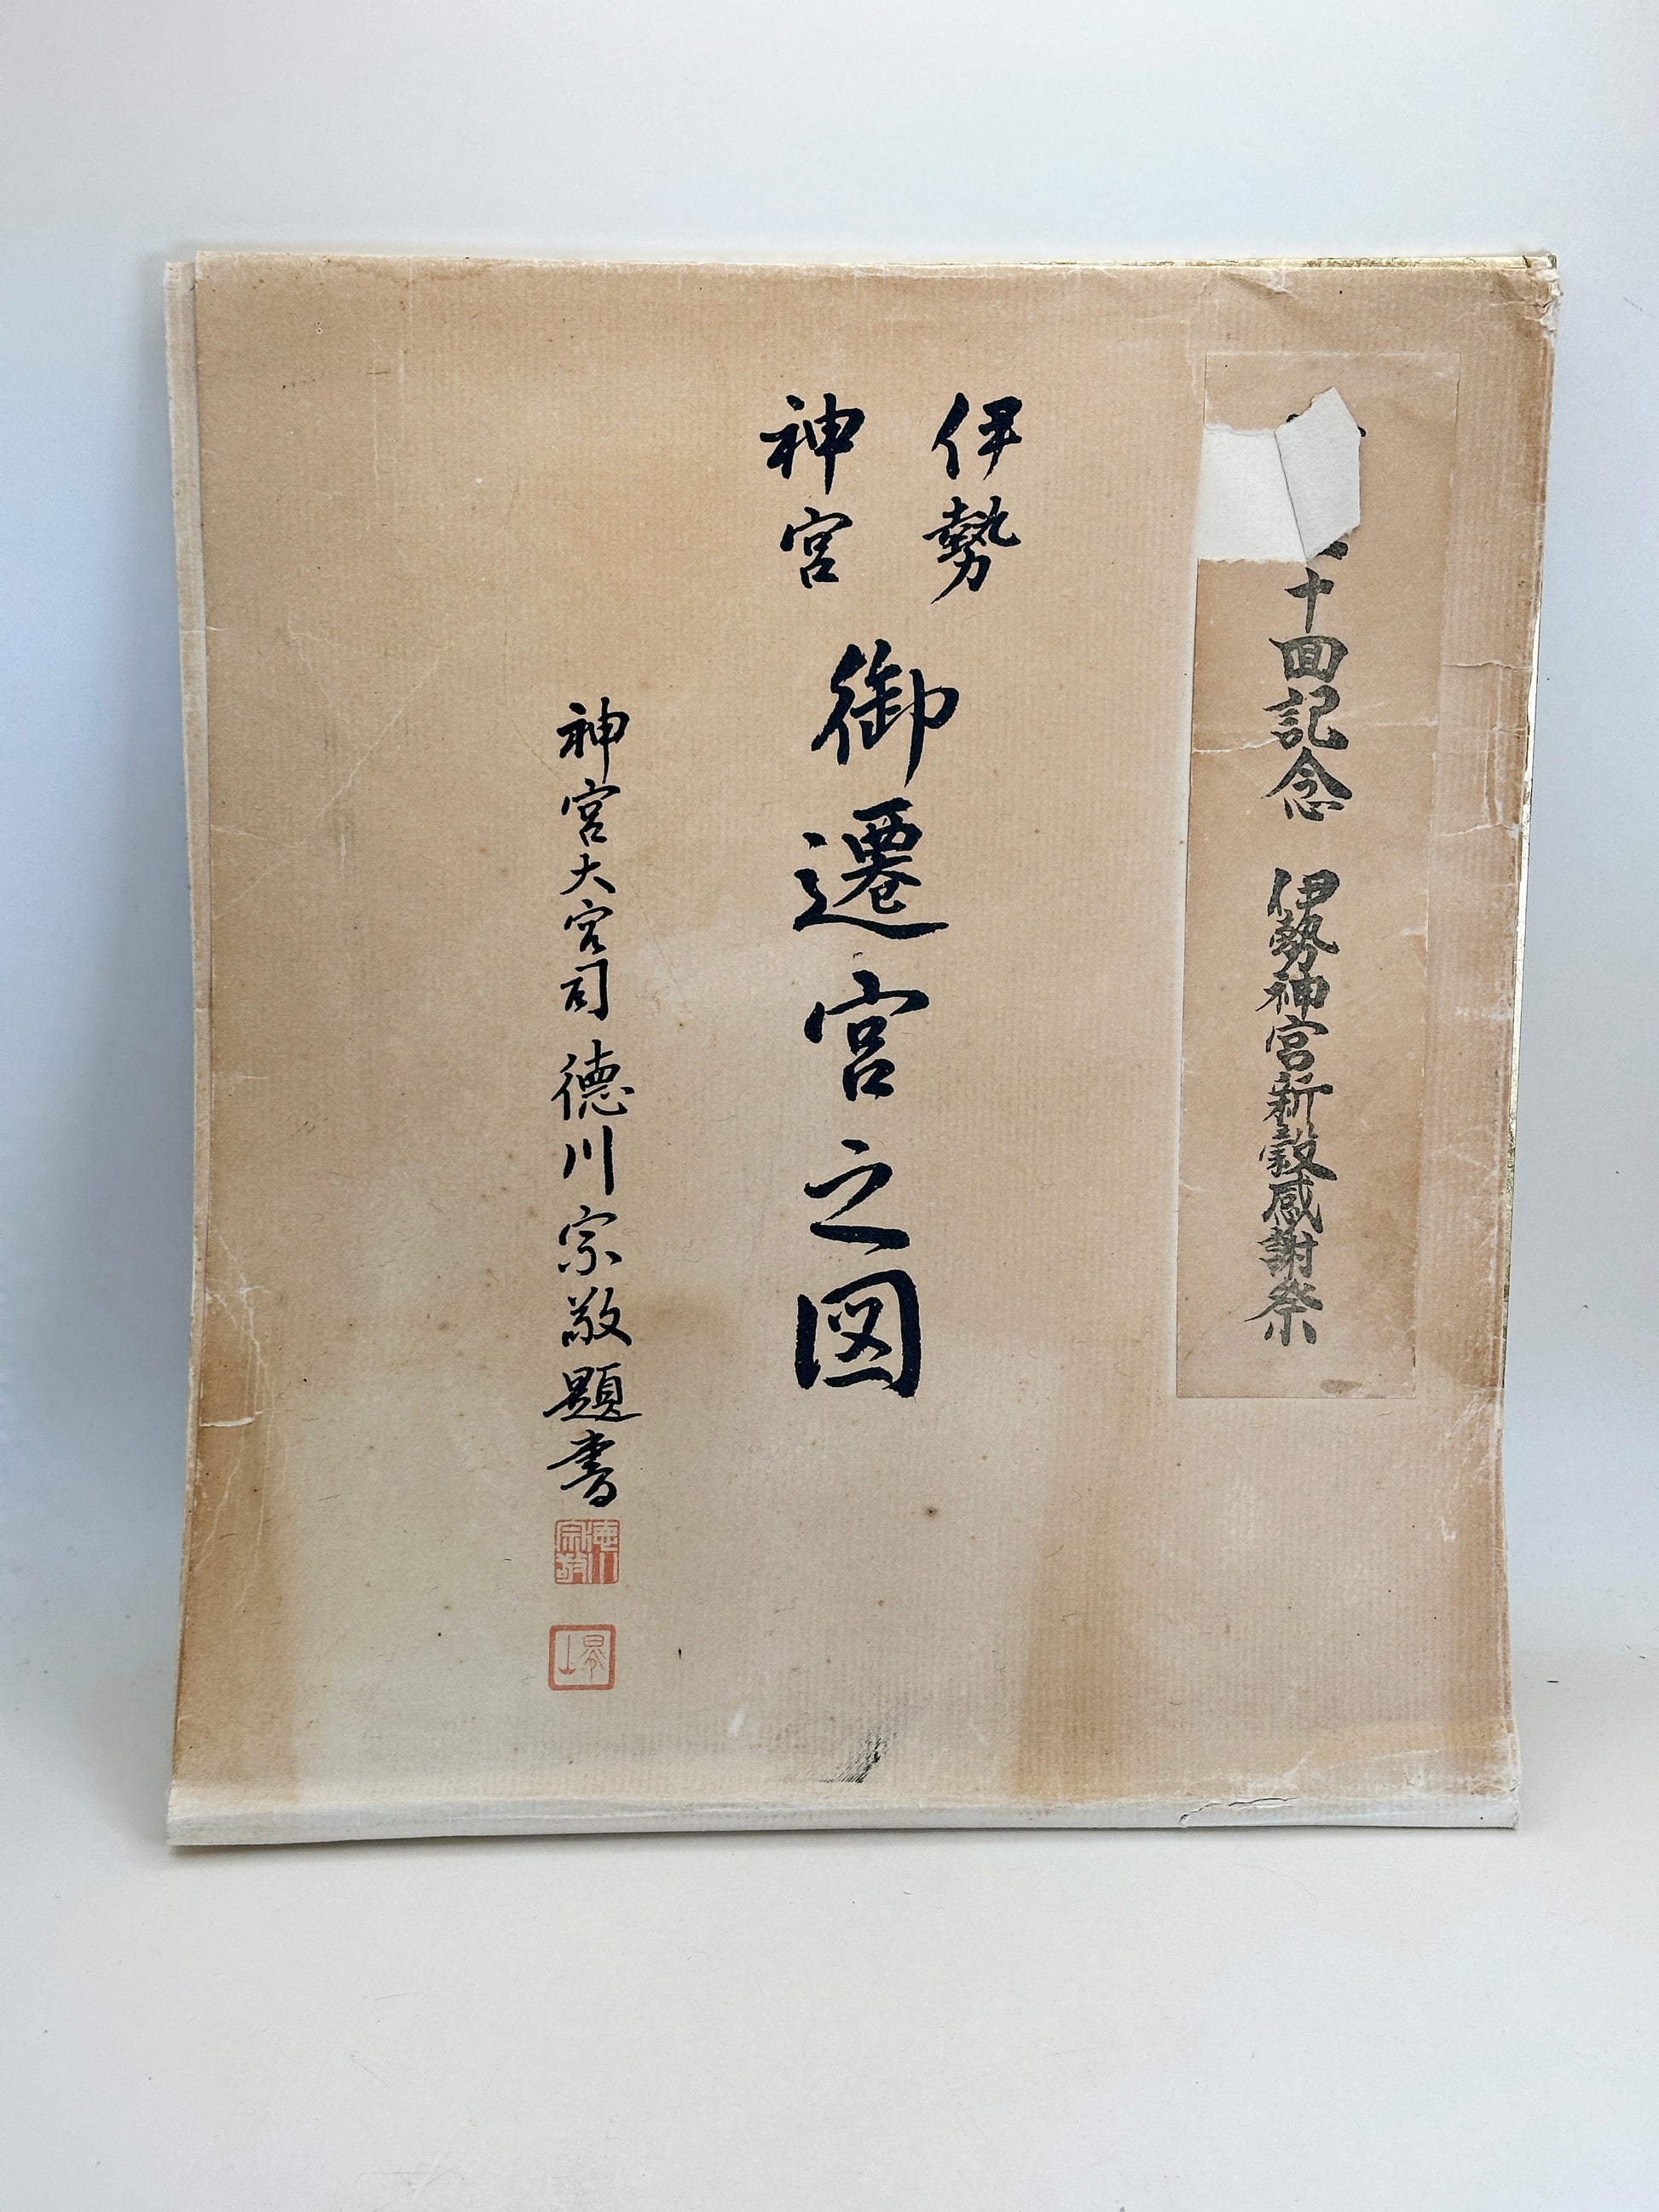 十回記念 伊勢神宮新穀感謝祭
伊勢
神宮
御遷宮之図
神宮大宮司 徳川宗敬題書
徳川
宗敬